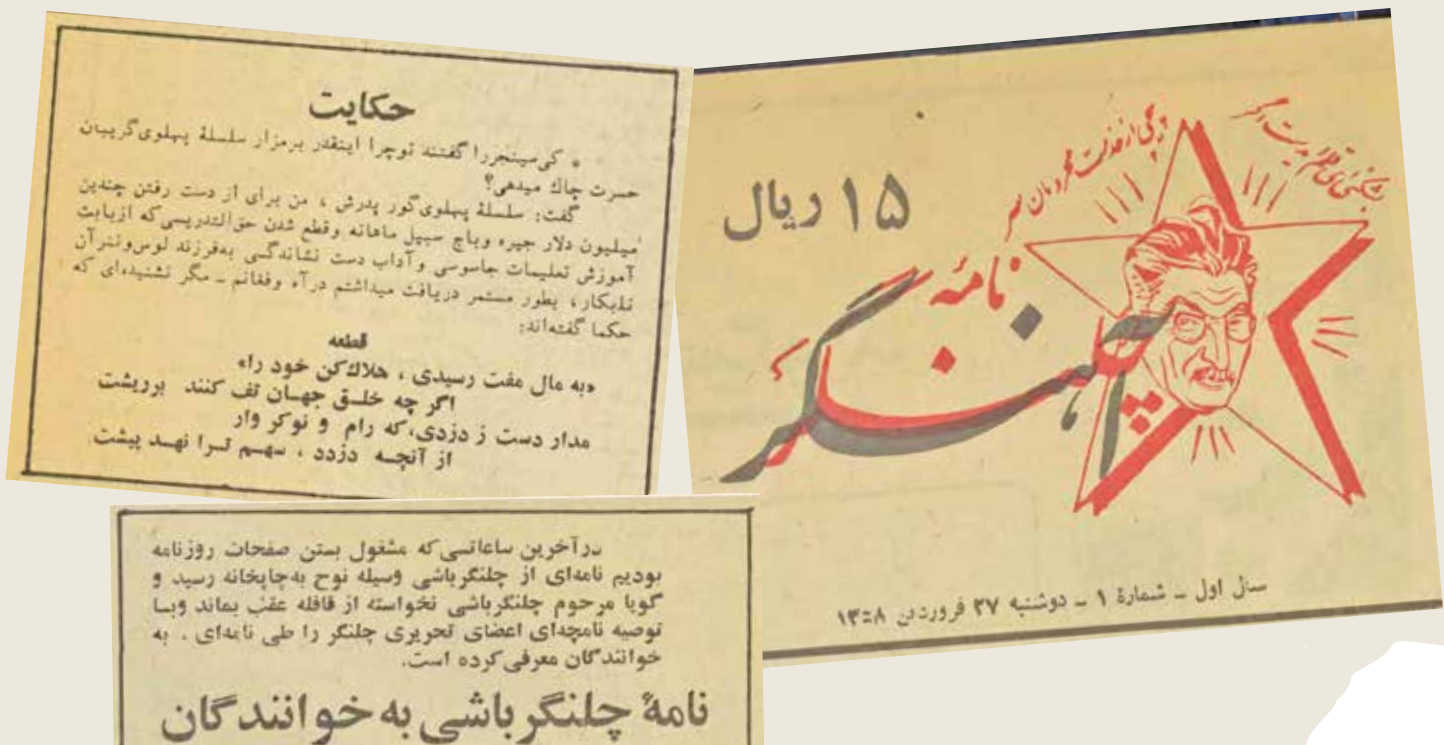 حکایت
* کی‌سینجر را گفتند تو چرا اینقدر برمزار سلسلهٔ پهلوی گریبان
حسرت چاک میدهی؟
گفت: سلسلهٔ پهلوی گور پدرش ، من برای از دست رفتن چندین
میلیون دلار جیره و باج سبیل ماهانه و قطع شدن حق‌التدریسی که ازبابت
آموزش تعلیمات جاسوسی و آداب دست نشاندگی به‌فرزند لوس‌وننر آن
تذبکار ، بطور مستمر دریافت میداشتم درآه وفغانم ـ مگر نشنیده‌ای که
حکما گفته‌اند:
قطعه
«به مال مفت رسیدی ، هلاک‌کن خود را»
اگر چه خلق جهان تف کنند برریشت
مدار دست ز دزدی، که رام و نوکر وار
از آنچه دزدد ، سهم ترا نهد پیشت
۱۵ ریال
نامهٔ
چلنگر
آهنگر
سال اول ـ شمارهٔ ۱ ـ دوشنبه ۲۷ فروردین ۱۳۵۸
درآخرین ساعاتی‌که مشغول بستن صفحات روزنامه
بودیم نامه‌ای از چلنگرباشی وسیله نوح به‌چاپخانه رسید و
گویا مرحوم چلنگرباشی نخواسته از قافله عقب بماند وبا
توصیه نامچه‌ای اعضای تحریری چلنگر را طی نامه‌ای . به
خوانندگان معرفی‌کرده است.
نامهٔ چلنگرباشی به خوانندگان